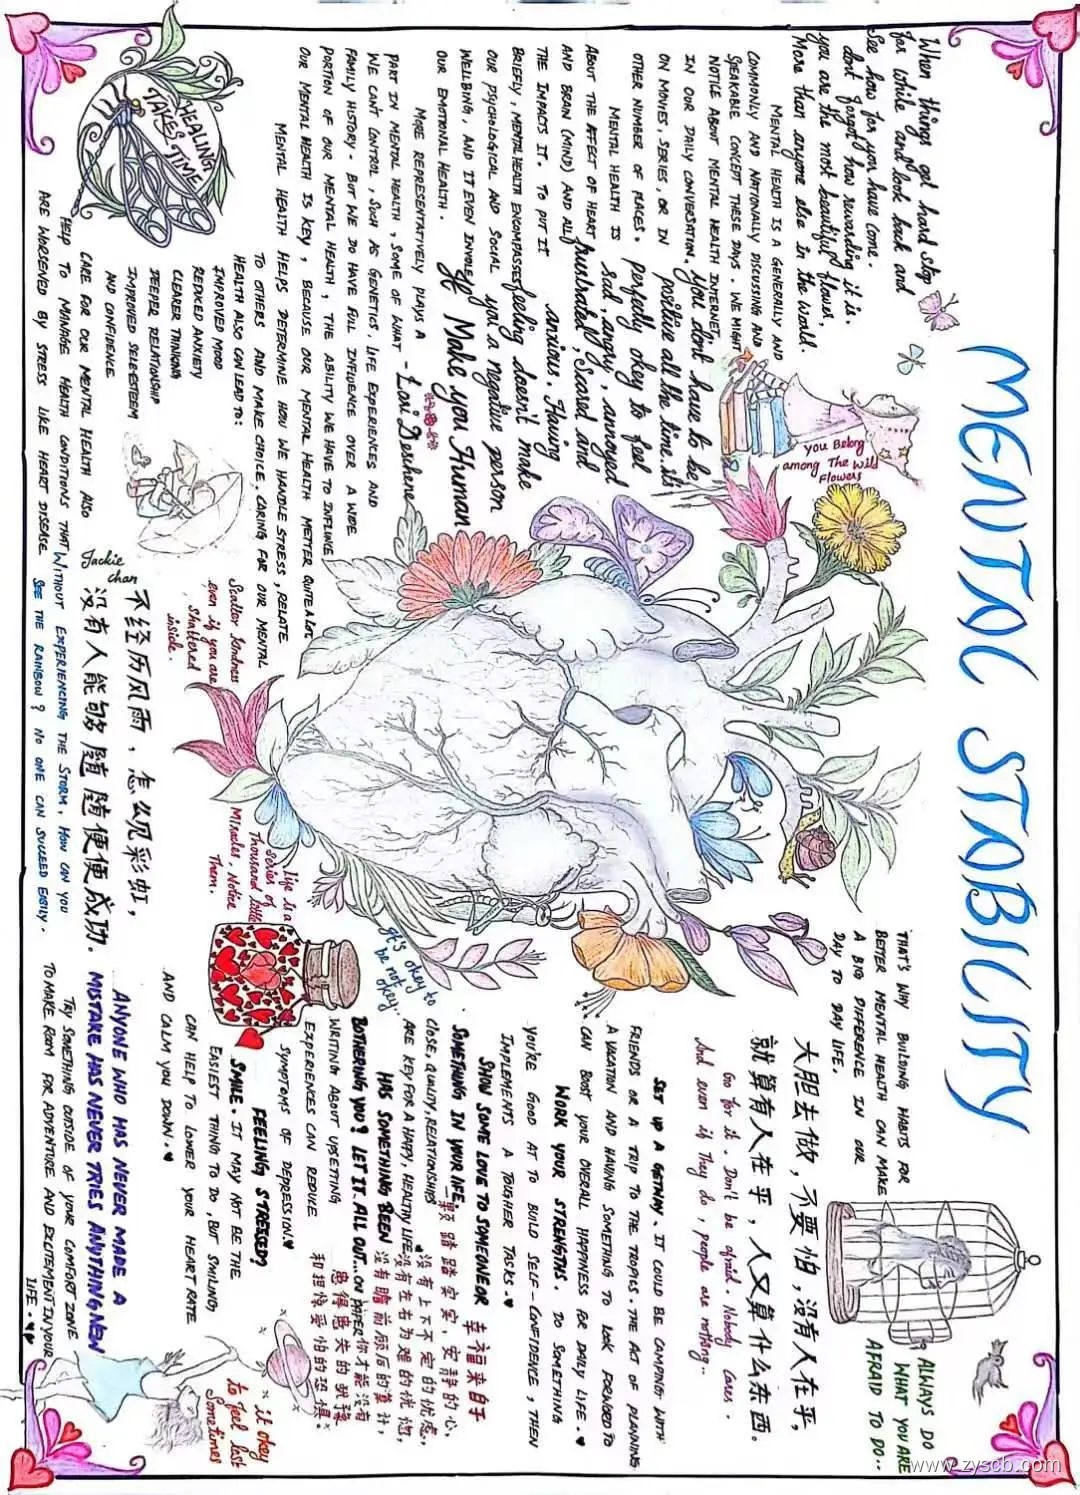 MENTAL STABILITY
When things get hard stop
for while and look back and
See how far you have come.
dont forgot how rewarding it is.
you are the most beautiful flower,
More than anyone else in the world.
MENTAL HEALTH IS A GENERALLY AND
COMMONLY AND NATIONALLY DISCUSSING AND
SPEAKABLE CONCEPT THESE DAYS. WE MIGHT
NOTICE ABOUT MENTAL HEALTH INTERNET,
IN OUR DAILY CONVERSATION,
ON MOVIES, SERIES, OR IN
OTHER NUMBER OF PLACES.
MENTAL HEALTH IS
ABOUT THE AFFECT OF HEART
AND BRAIN (MIND) AND ALL
THE IMPACTS IT. TO PUT IT
BRIEFLY, MENTAL HEALTH ENCOMPASSES
OUR PSYCHOLOGICAL AND SOCIAL
WELLBING, AND IT EVEN INVOLE
OUR EMOTIONAL HEALTH.
MORE REPRESENTATIVELY PLAYS A
PART IN MENTAL HEALTH, SOME OF WHAT
WE CAN'T CONTROL, SUCH AS GENETICS, LIFE EXPERIENCES AND
FAMILY HISTORY. BUT WE DO HAVE FULL INFLUENCE OVER A WIDE
PORTION OF OUR MENTAL HEALTH, THE ABILITY WE HAVE TO INFLUNCE
OUR MENTAL HEALTH IS KEY, BECAUSE OUR MENTAL HEALTH METTER QUITE A LOT.
MENTAL HEALTH HELPS DETERMINE HOW WE HANDLE STRESS, RELATE
TO OTHERS AND MAKE CHOICE, CARING FOR OUR MENTAL
HEALTH ALSO CAN LEAD TO:
IMPROVED MOOD
REDUCED ANXIETY
CLEARER THINKING
DEEPER RELATIONSHIP
IMPROVED SELE-ESTEEM
AND CONFIDENCE.
CARE FOR OUR MENTAL HEALTH ALSO
HELP TO MANAGE HEALTH CONDITIONS THAT
ARE WORSENED BY STRESS LIKE HEART DISEASE.
HEALING
TAKES
TIME
you dont have to be
positive all the time. it's
perfectly okay to feel
Sad, angry, annoyed
frustrated, Scared and
anxious. Having
feeling doesn't make
you a negative person
Make you Human
-Lori Deshene
you Belong
among The Wild
Flowers
Jackie
chan
不经历风雨，怎么见彩虹，
没有人能够随随便便成功.
WITHOUT EXPERIENCING THE STORM, HOW CAN YOU
SEE THE RAINBOW ? NO ONE CAN SUCCEED EASILY.
Scatter kindness
even if you are
Shattered
inside.
Life is a
Series of
Thousand little
Miracles, Notice
Them.
it's okey to
be not okey...
THAT'S WHY BUILDING HABITS FOR
BETTER MENTAL HEALTH CAN MAKE
A BIG DIFFERENCE IN OUR
DAY TO DAY LIFE.
ALWAYS DO
WHAT YOU ARE
AFRAID TO DO..
大胆去做，不要怕，没有人在乎，
就算有人在乎，人又算什么东西。
Go for it. Don't be afraid. Nobody Cares.
And even if They do, people are nothing..
SET UP A GETWAY. IT COULD BE CAMPING WITH
FRIENDS OR A TRIP TO THE TROPICS. THE ACT OF PLANNING
A VACATION AND HAVING SOMETHING TO LOOK FORWARD TO
CAN BOOST YOUR OVERALL HAPPINESS FOR DAILY LIFE.
WORK YOUR STRENGTHS. DO SOMETHING
YOU'RE GOOD AT TO BUILD SELF-CONFIDENCE, THEN
IMPLEMENTS A TOUGHER TASKS.
SHOW SOME LOVE TO SOMEONE OR
SOMETHING IN YOUR LIFE.
CLOSE, QUALITY, RELATIONSHIPS
ARE KEY FOR A HAPPY, HEALTHY LIFE.
HAS SOMETHING BEEN
BOTHERING YOU? LET IT ALL OUT...ON PAPER
WRITING ABOUT UPSETTING
EXPERIENCES CAN REDUCE
SYMPTOMS OF DEPRESSION.
幸福来自于
一颗踏踏实实，安静的心，
没有上下不定的忧虑，
没有左右为难的忧愁，
没有瞻前顾后的算计，
你才能没有
患得患失的
和担惊受怕的恐惧.
FEELING STRESSED?
SMILE. IT MAY NOT BE THE
EASIEST THING TO DO, BUT SMILING
CAN HELP TO LOWER YOUR HEART RATE
AND CALM YOU DOWN.
ANYONE WHO HAS NEVER MADE A
MISTAKE HAS NEVER TRIES ANYTHING NEW
TRY SOMETHING OUTSIDE OF YOUR COMFORT ZONE
TO MAKE ROOM FOR ADVENTURE AND EXCITEMENT IN YOUR
LIFE.
it okey
to feel lost
Sometimes
www.zyscb.com